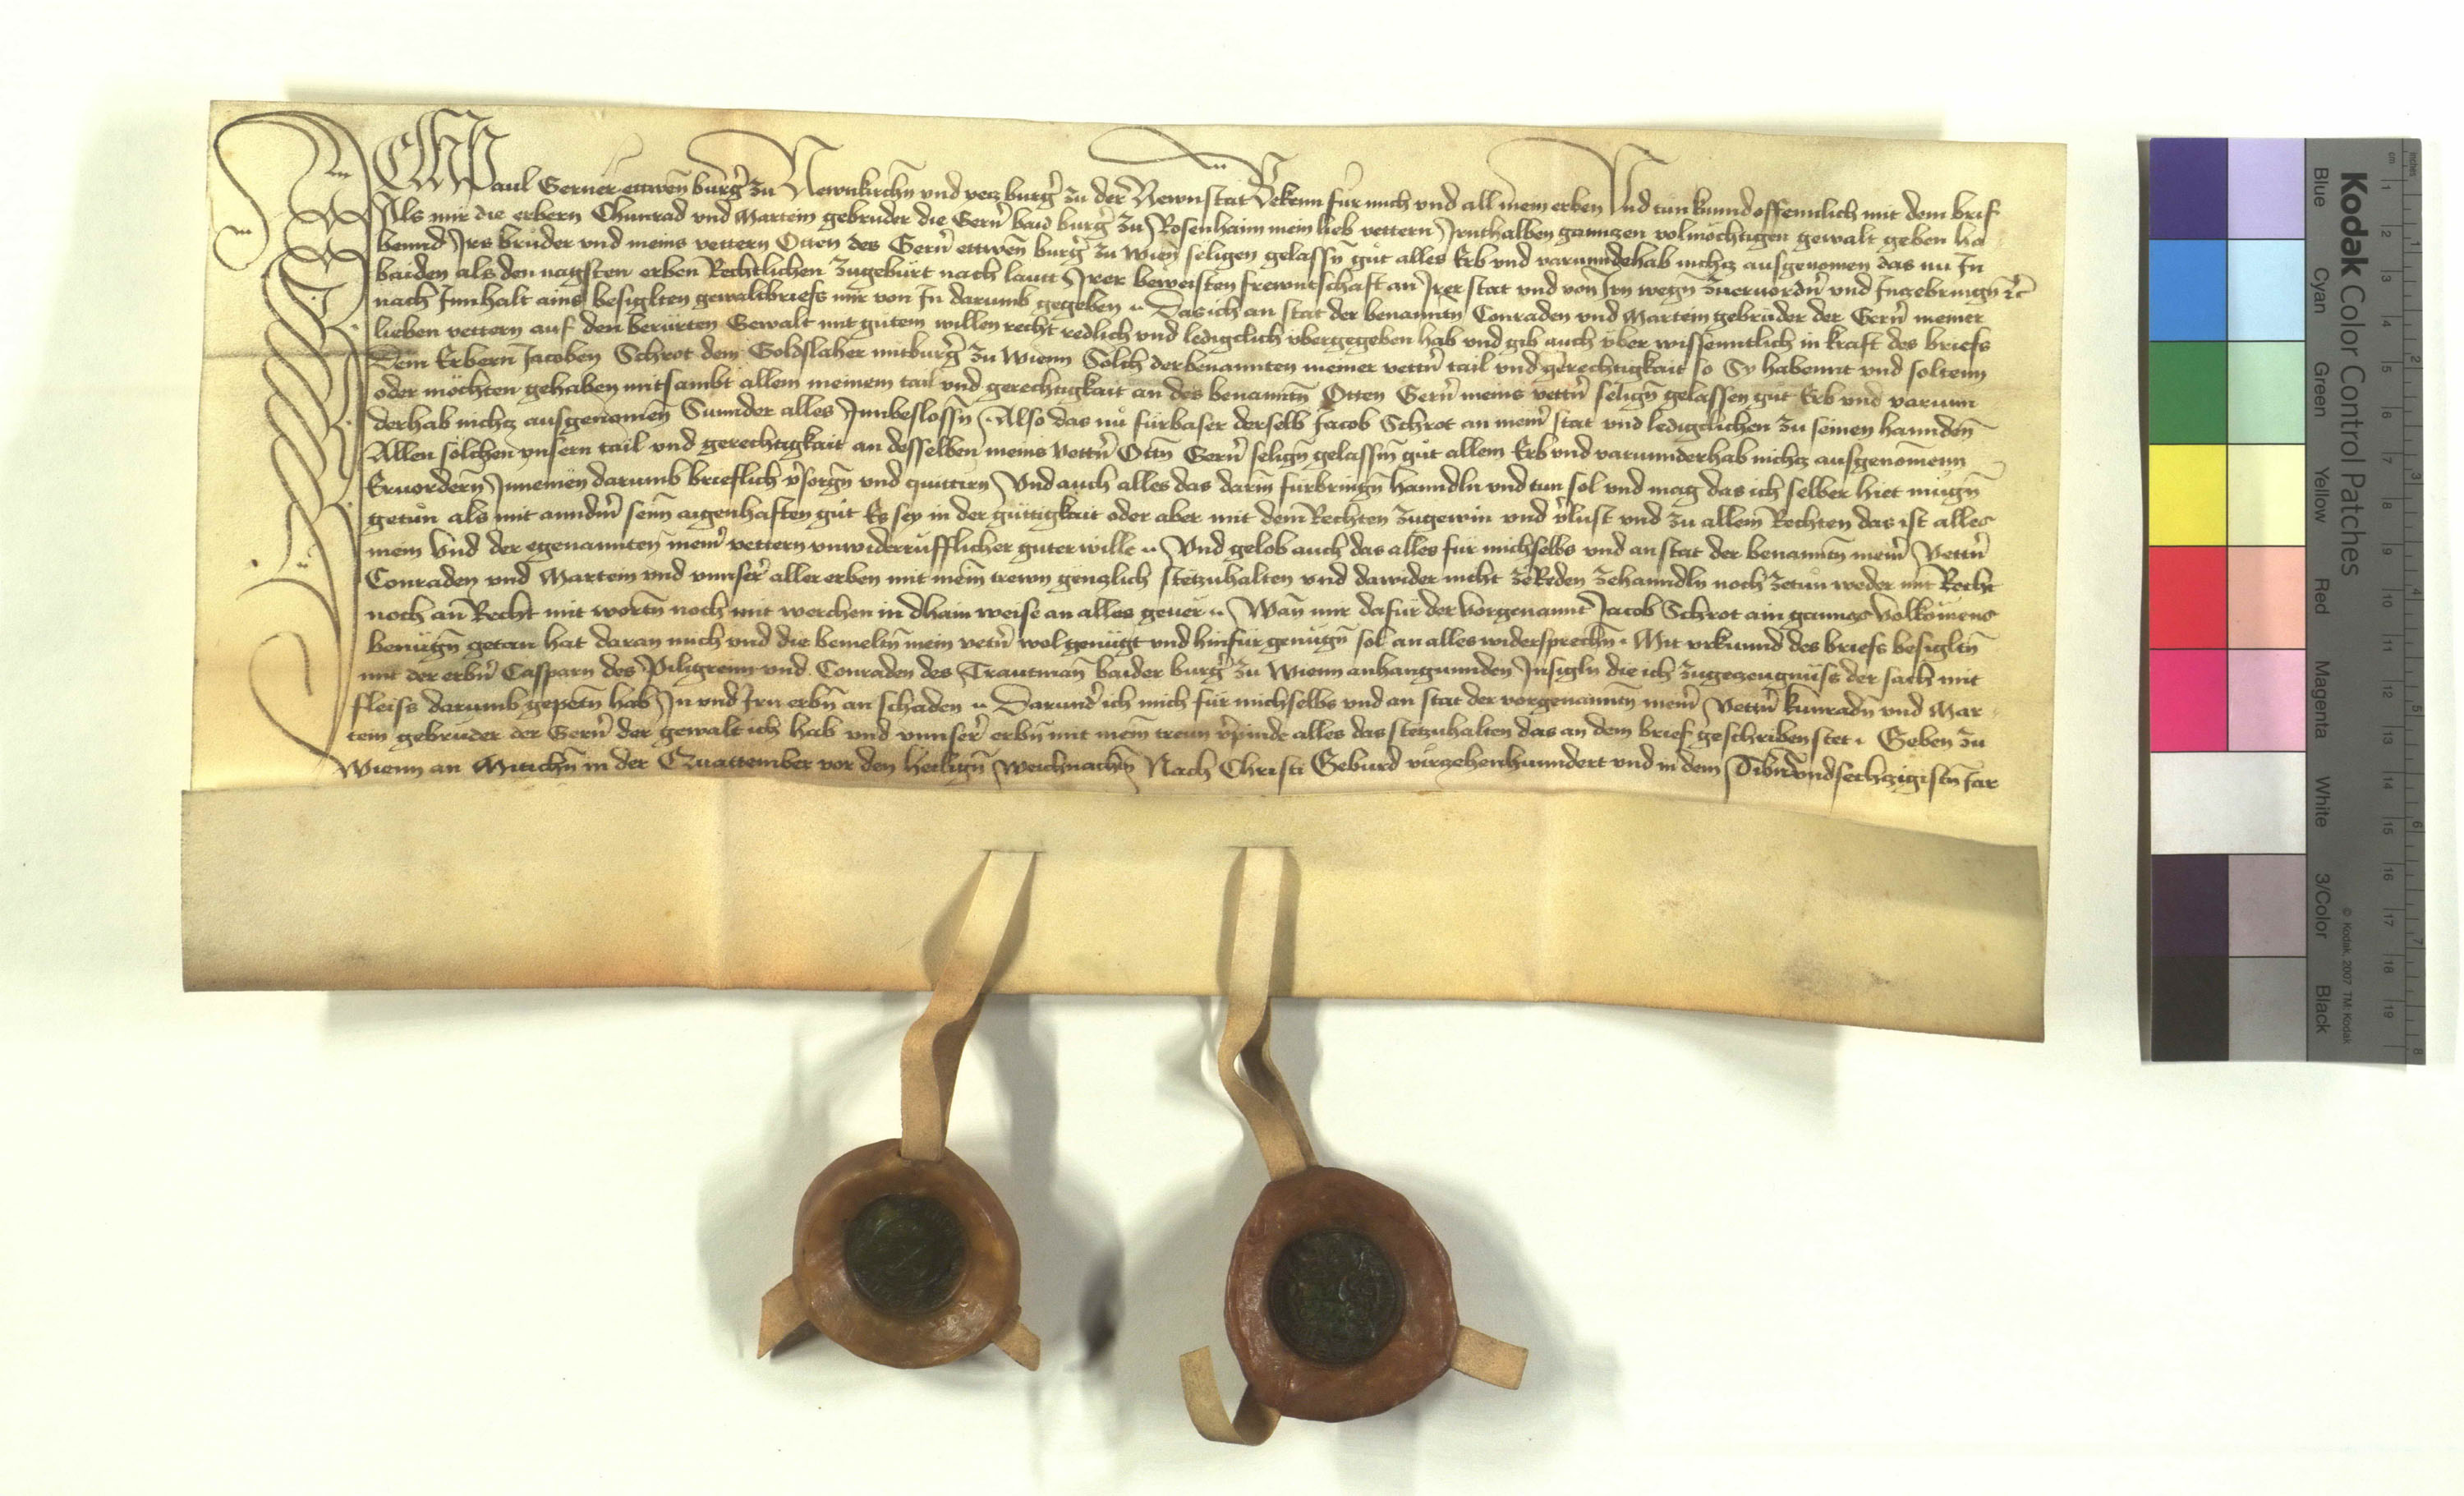 Ich Paul Gerner ettwen burgˀ zu Newnkirchn̄ vnd yecz burgˀ zu der Newnstat Bekenn fur mich vnd all mein erben Vnd tun kund offenntlich mit dem brif
Als mir die erbern Chunrad vnd Martein gebruder die Gernˀ baid burgˀ zu Rosenhaim mein lieb vettern Irnthalben ganntzen volmöchtigen gewalt geben ha
bennd Irs bruder vnd meins vettern Otten des Gernˀ ettwen̄ burgˀ zu Wien̄ seligen gelassn̄ gut alles Erb vnd varunndehab nichcz ausgenomen das nu In
baiden als den nagsten erben Rechtlichen zugeburt nach lautt Irer beweisten frewntschaft an Irer stat vnd von Irn wegn̄ zueruordn̄ vnd Inczebringn̄ ꝛc̄
nach Innhalt ains besiglten gewaltbriefs mir von In darumb gegeben Das ich an stat der benanntn̄ Conraden vnd Martein gebruder der Gernˀ meiner
lieben vettern auf den berürten Gewalt mit gutem willen recht redlich vnd ledigclich vbergegeben hab vnd gib auch vber wissenntlich in kraft des briefs
Dem Erbern Jacoben Schrot dem Goldslaher mitburgˀ zu Wienn Solch der benannten meiner vettnˀ tail vnd gerechtigkait so Sy habennt vnd soltenn
oder möchten gehaben mitsambt allem meinem tail vnd gerechtigkait an des benanntn̄ Otten Gernˀ meins vettnˀ selign̄ gelassen gut Erb vnd varunn
derhab nichcz ausgenomen̄ Sunnder alles Innbeslossn̄ Also das nu furbaser derselb Jacob Schrot an meinˀ stat vnd ledigclichen zu seinen hannden̄
Allen solchen vnsern tail vnd gerechtigkait an desselben meins vettnˀ Ottn̄ Gernˀ selign̄ gelassnn̄ gut allem Erb vnd varunnderhab nichcz ausgenomenn
Eruordern̄ Innemen darumb brieflich vˀsorgn̄ vnd quittirn Vnd auch alles das darin̄ furbringn̄ hanndln vnd tun sol vnd mag das ich selber hiet mugn̄
getun als mit anndmˀ seinn̄ aigenhaften gut Es sey in der guttigkait oder aber mit dem Rechten zugewin vnd vˀlust vnd zu allem Rechten das ist alles
mein Vnd der egenannten̄ meinˀ vettern vnwiderrüfflicher guter wille Vnd gelob auch das alles fur michselbs vnd an stat der benanntn̄ meinˀ Vettnˀ
Conraden vnd Martein vnd vnnserˀ aller erben mit mein̄ trewn genczlich stetzuhalten vnd dawider nicht zeReden zehanndln noch zetun weder mit Recht
noch an Recht mit wortn̄ noch mit werchen in dhain weise an alles geuerˀ Wan̄ mir dafur der Vorgenannt Jacob Schrot ain gannczs Volkomens
benügn̄ getan hat daran mich vnd die bemeltn̄ mein vetnˀ wol genügt vnd hinfur genügn̄ sol an alles widersprechn̄ Mit vrkunnd des briefs besigltn̄
mit der erbnˀ Casparn des Piligreim vnd Conraden des Trautman̄ baider burgˀ zu Wienn anhangunnden Insigln die ich zugeczeugnüss der sach mit
fleiss darumb gepetn̄ hab In vnd Irn erbn̄ an schaden Darundˀ ich mich fur michselbs vnd an stat der vorgenanntn̄ meinˀ Vettnˀ kunradn̄ vnd Mar
tein gebruder der Gernˀ der gewalt ich hab vnd vnnserˀ erbn̄ mit mein̄ treun vˀpinde alles das stetzuhalten das an dem brief geschriben stet Geben zu
Wienn an Mitichn̄ in der Quattember vor den heilign̄ Weichnachtn̄ Nach Christi Geburd virzehenhunndert vnd in dem Sibnundsechczigistn̄ Jar
Kodak Color Control Patches
© Kodak, 2007 TM: Kodak
Blue Cyan Green Yellow Red Magenta White 3/Color Black
cm 1 2 3 4 5 6 7 8 9 10 11 12 13 14 15 16 17 18 19
inches 1 2 3 4 5 6 7 8